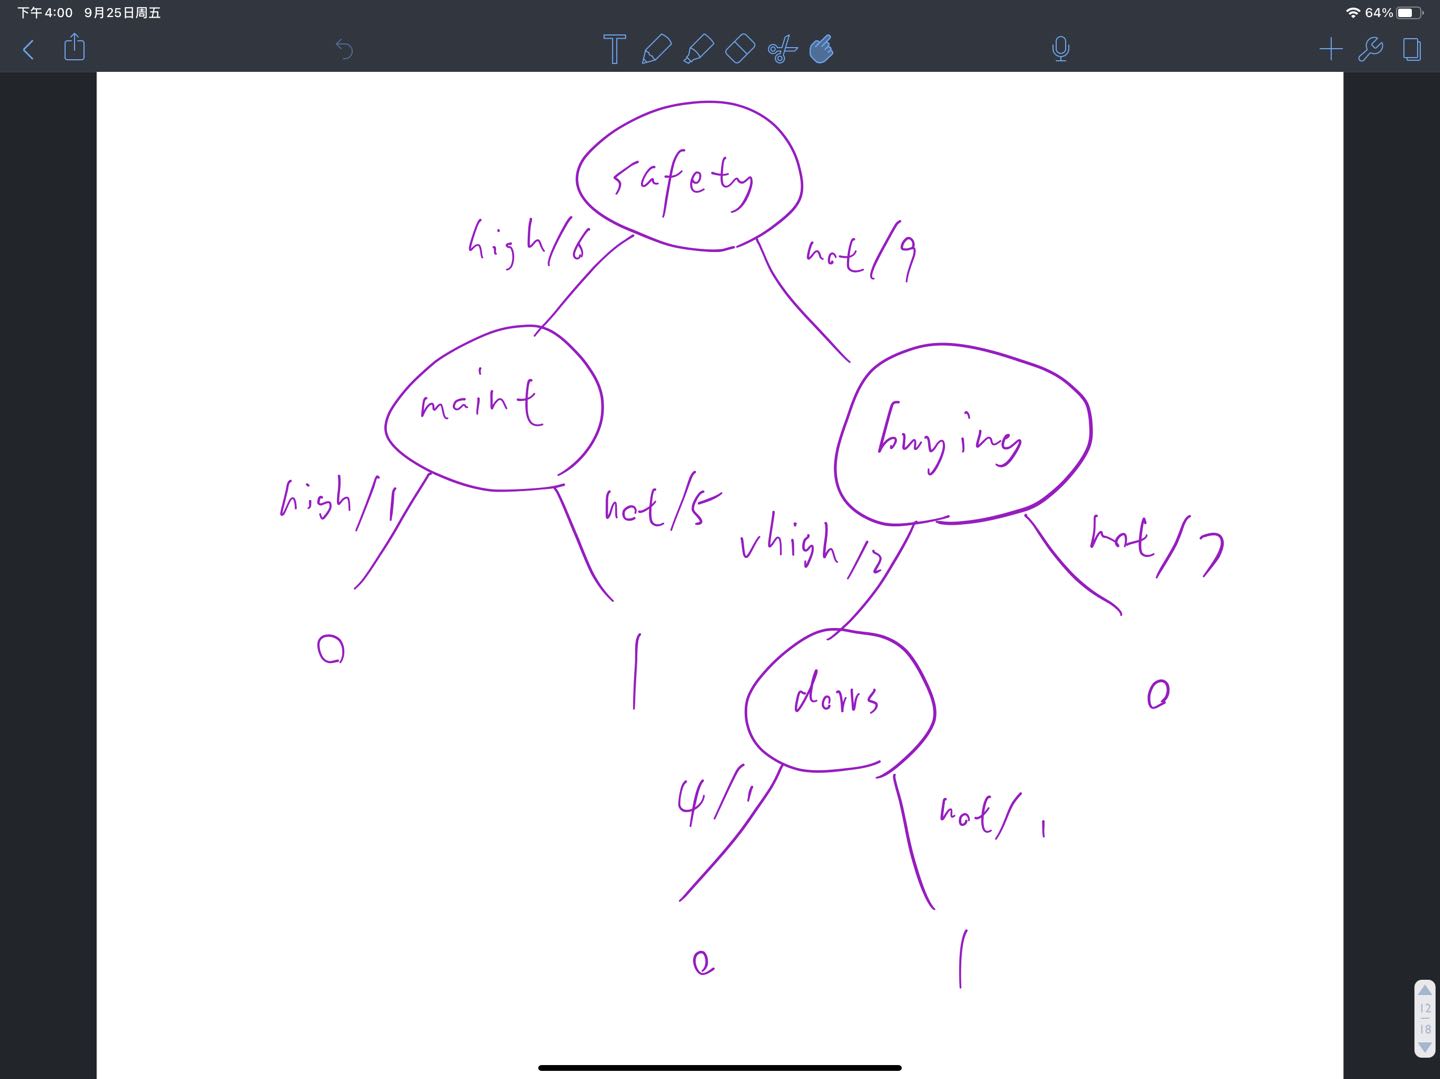 下午4:00 9月25日周五
64%
safety
high/6
not/9
maint
buying
high/1
not/5
vhigh/2
not/7
0
1
doors
0
4/1
not/1
0
1
12
18